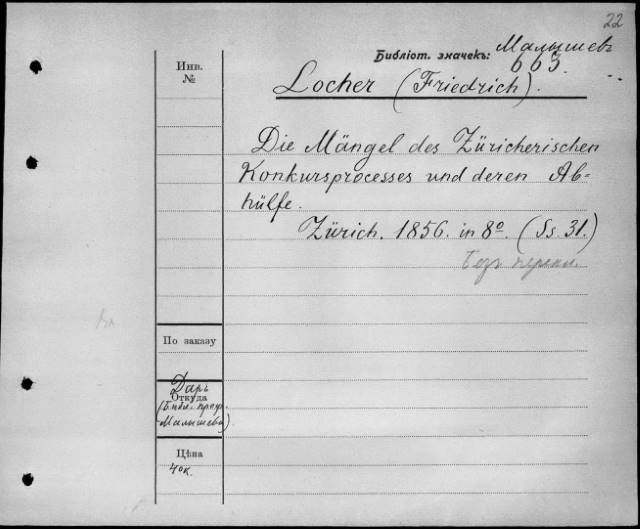 22
Малышевъ
Библіот. значекъ: 663.
Инв.
№
Locher (Friedrich).
Die Mängel des Züricherischen
Konkursprocesses und deren Ab=
hülfe.
Zürich. 1856. in 8º. (Ss. 31.)
Безъ перепл.
По заказу
Даръ
Откуда
(Библ. проф.
Малышева)
Цѣна
40к.